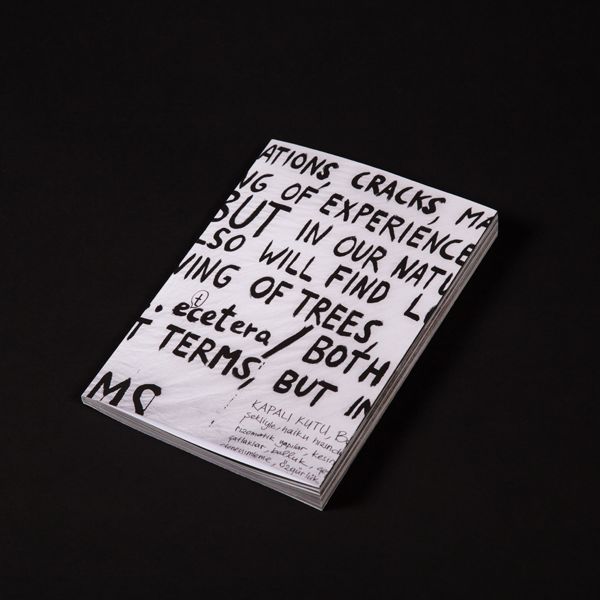 ATIONS, CRACKS, MA
NG OF EXPERIENCE
BUT IN OUR NATU
LSO WILL FIND L
VING OF TREES,
. etcetera / BOTH
T TERMS, BUT IN
MS
KAPALI KUTU, B
şekliyle, haiku hızında
rizomatik yapılar, kesin
çatlaklar, bolluk,
deneyimleme, özgürlük